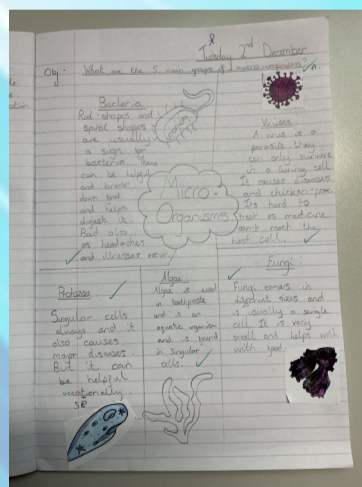 Tuesday 2nd December
Obj - What are the 5 main groups of microorganisms?
Bacteria
Rod shapes and
spiral shapes
are usually
a sign of
bacteria. They
can be helpful
and break
down food
and helps
digest it.
Bad also
as headaches
and illnesses
Micro-
Organisms
Viruses
A virus is a
parasite they
can only survive
in a living cell
It causes diseases
and chicken pox
Its hard to
treat as medicine
can't reach the
host cell.
Protozoa
Singular cells
always and it
also causes
major diseases.
But it can
be helpful
occationally.
Algae
Algae is used
in toothpaste
and is an
aquatic organism
and is found
in singular
cells.
Fungi
Fungi comes in
different sizes and
is usually a single
cell It is very
small and helps
with food.